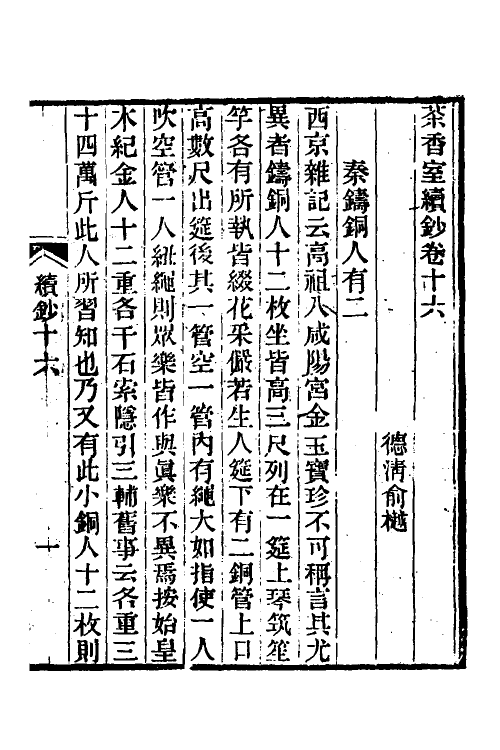 茶香室續鈔卷十六
德清俞樾
秦鑄銅人有二
西京雜記云高祖入咸陽宮金玉寶珍不可稱言其尤
異者鑄銅人十二枚坐皆高三尺列在一筵上琴筑笙
竽各有所執皆綴花采儼若生人筵下有二銅管上口
高數尺出筵後其一管空一管內有繩大如指使一人
吹空管一人紐繩則眾樂皆作與真眾不異焉按始皇
本紀金人十二重各千石索隱引三輔舊事云各重三
十四萬斤此人所習知也乃又有此小銅人十二枚則
續鈔十六
一